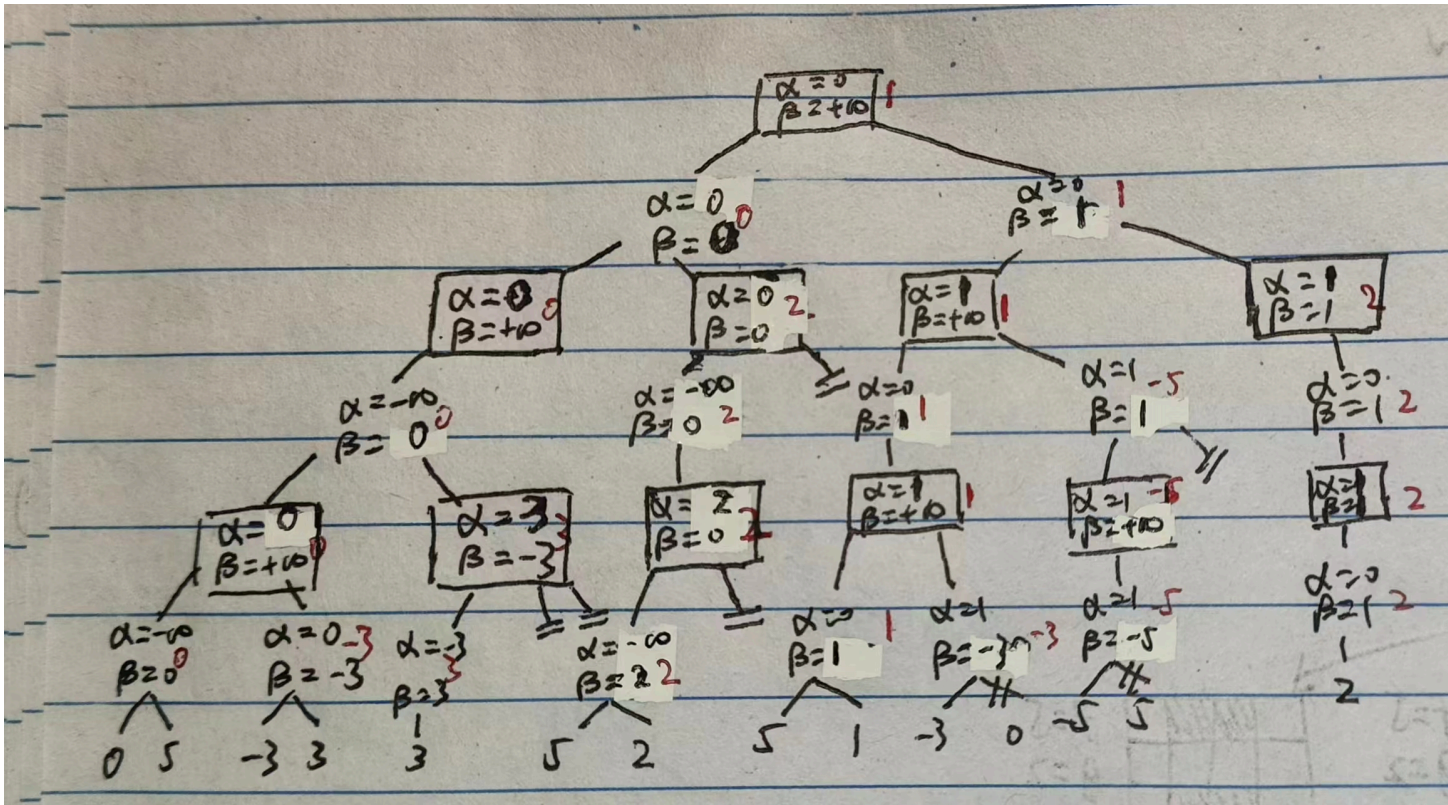 α=0
β=+∞ 1
α=0
β=0 0
α=0
β=1 1
α=0
β=+∞ 0
α=0
β=0 2
α=1
β=+∞ 1
α=1
β=1 2
α=-∞
β=0 0
α=-∞
β=0 2
α=0
β=1 1
α=1
β=1 -5
α=0
β=1 2
α=0
β=+∞ 0
α=3
β=-3 3
α=2
β=0 2
α=1
β=+∞ 1
α=1
β=+∞ -5
2
α=-∞
β=0 0
α=0
β=-3 -3
α=-3
β=3 3
α=-∞
β=2 2
α=0
β=1 1
α=1
β=-3 -3
α=1
β=-5 -5
α=0
β=1 2
0 5 -3 3 3 5 2 5 1 -3 0 -5 5 2